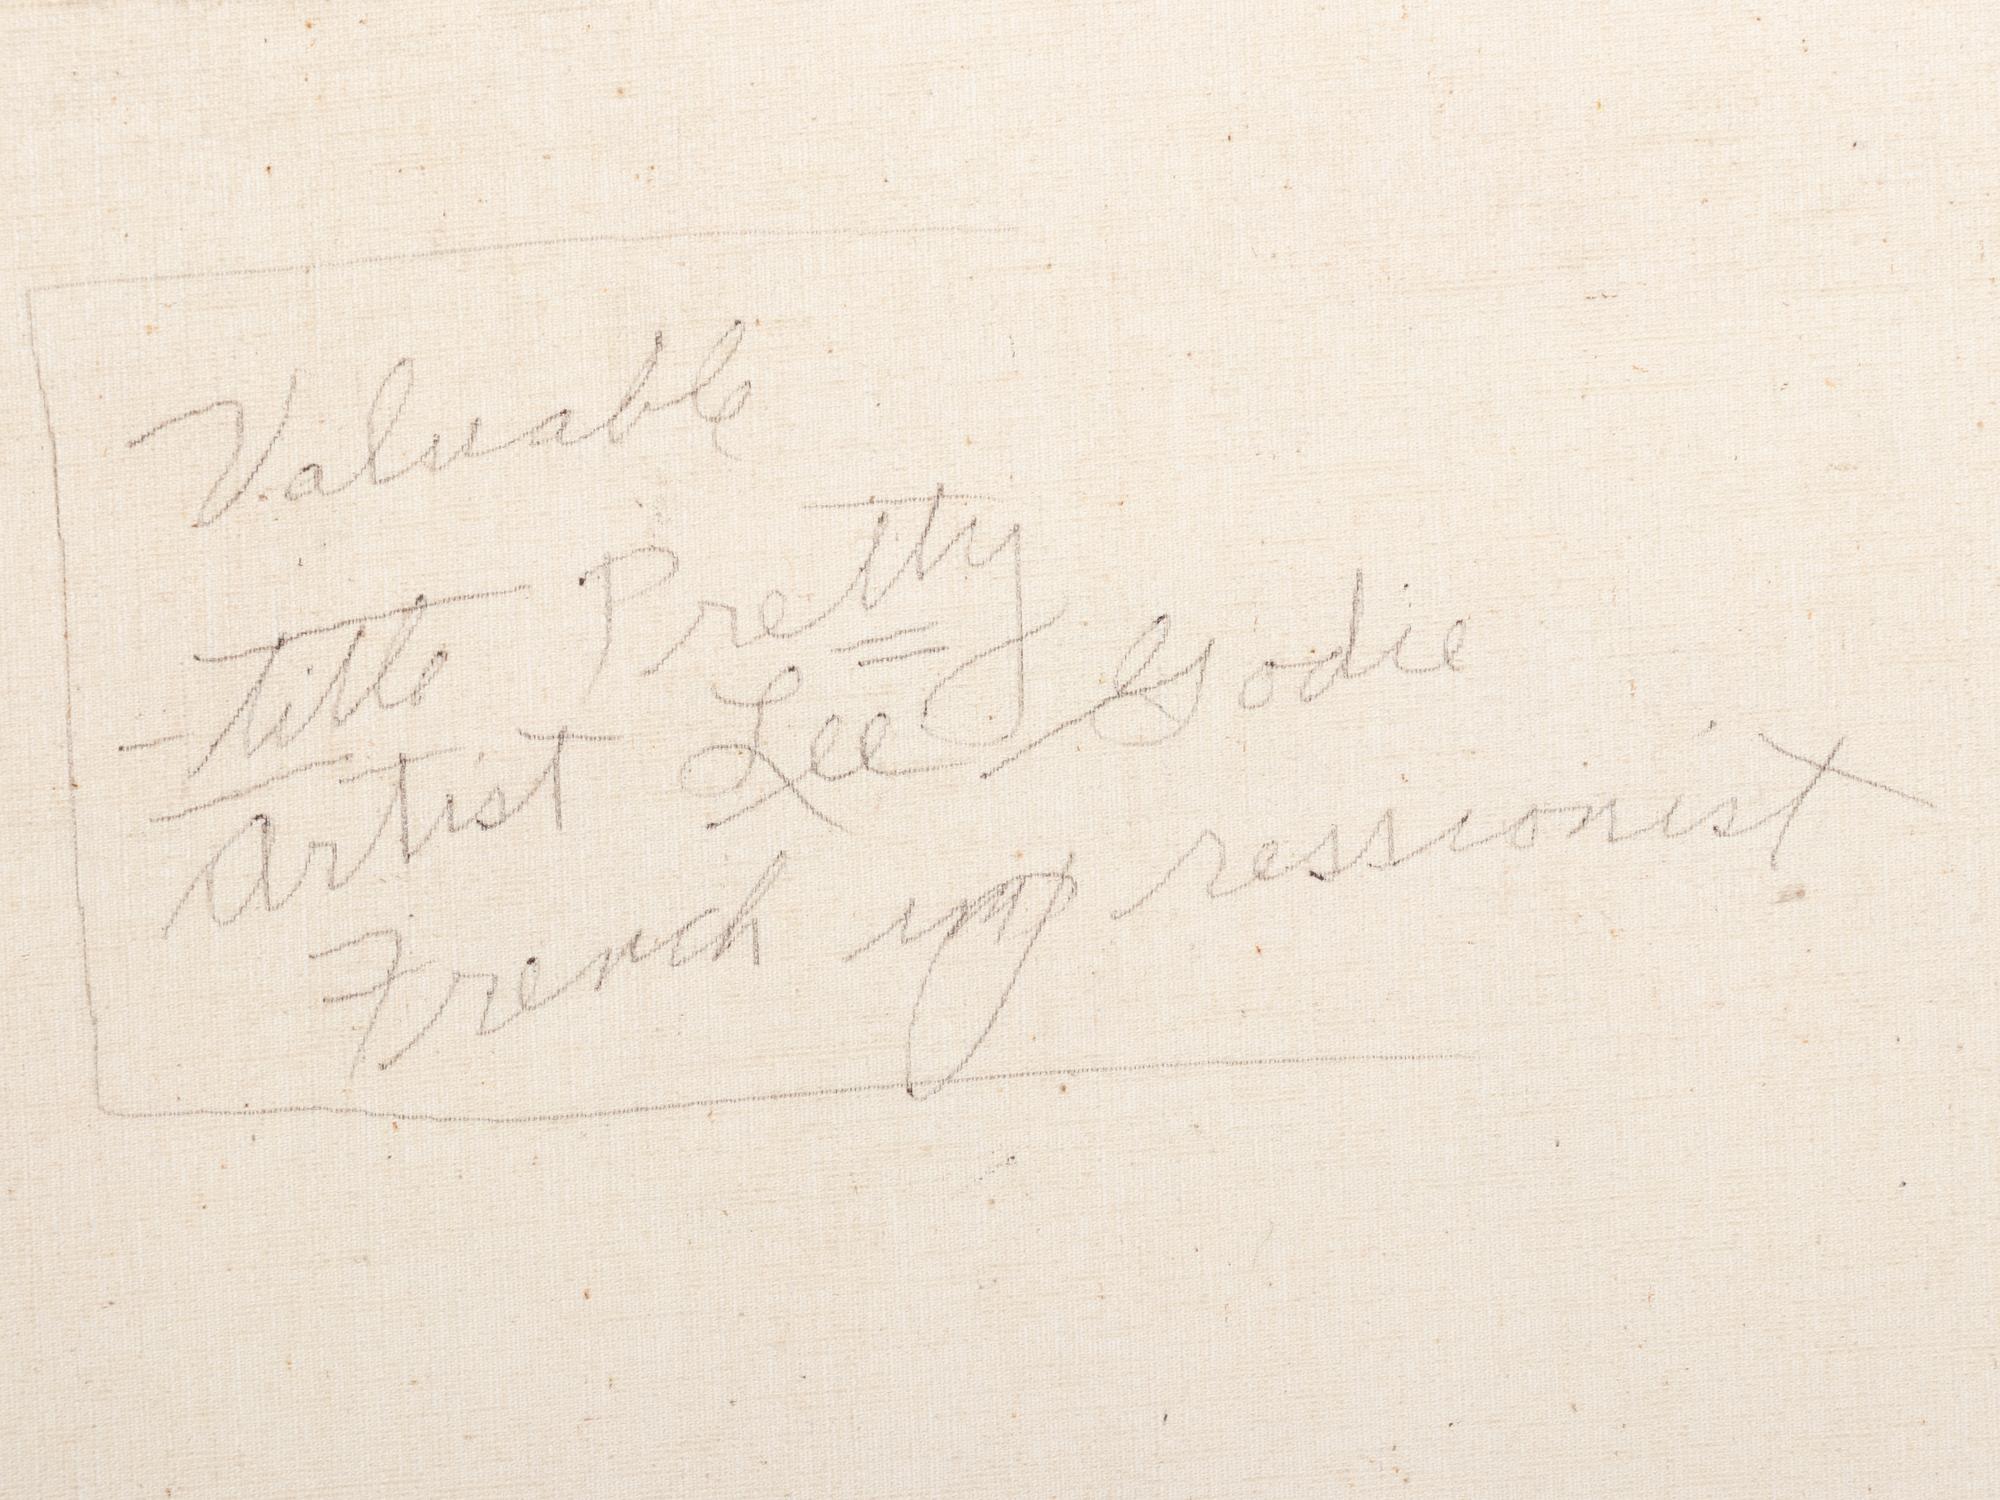 Valuable
Title Pretty
Artist Lee Godie
French impressionist